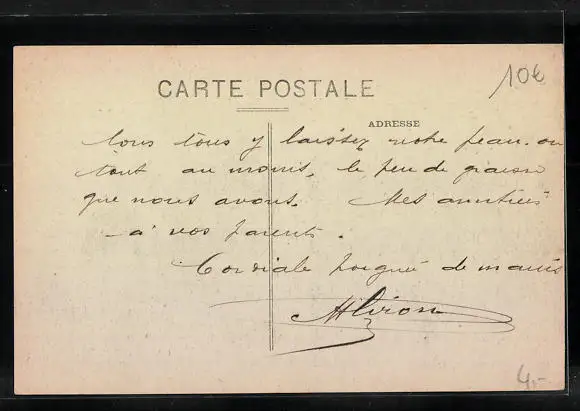 CARTE POSTALE
10€
ADRESSE
tous tous y laissez notre peau. ou
tout au moins, le peu de graisse
que nous avons. Mes amitiés
à vos parents.
Cordiale poignée de mains
4.-